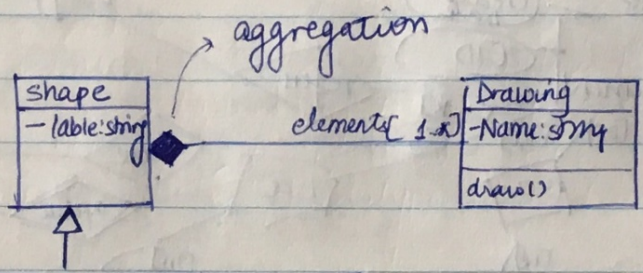 aggregation
shape
-lable:string
elements[1..*]
Drawing
-Name:string
draw()